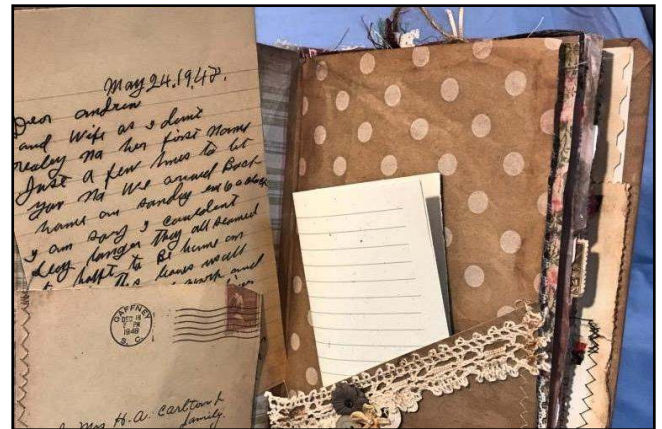 May 24, 1948.
Dear Andrew
and Wife as I dont
realey no her first name
Just a few lines to let
you no we arrived Back
home on Sunday
I am sorry I couldent
stay longer they all seamed
to Be home on
This leaves us all
work and
GAFFNEY
DEC 18
PM
1948
S. C.
Mrs H. A. Carlton &
family.